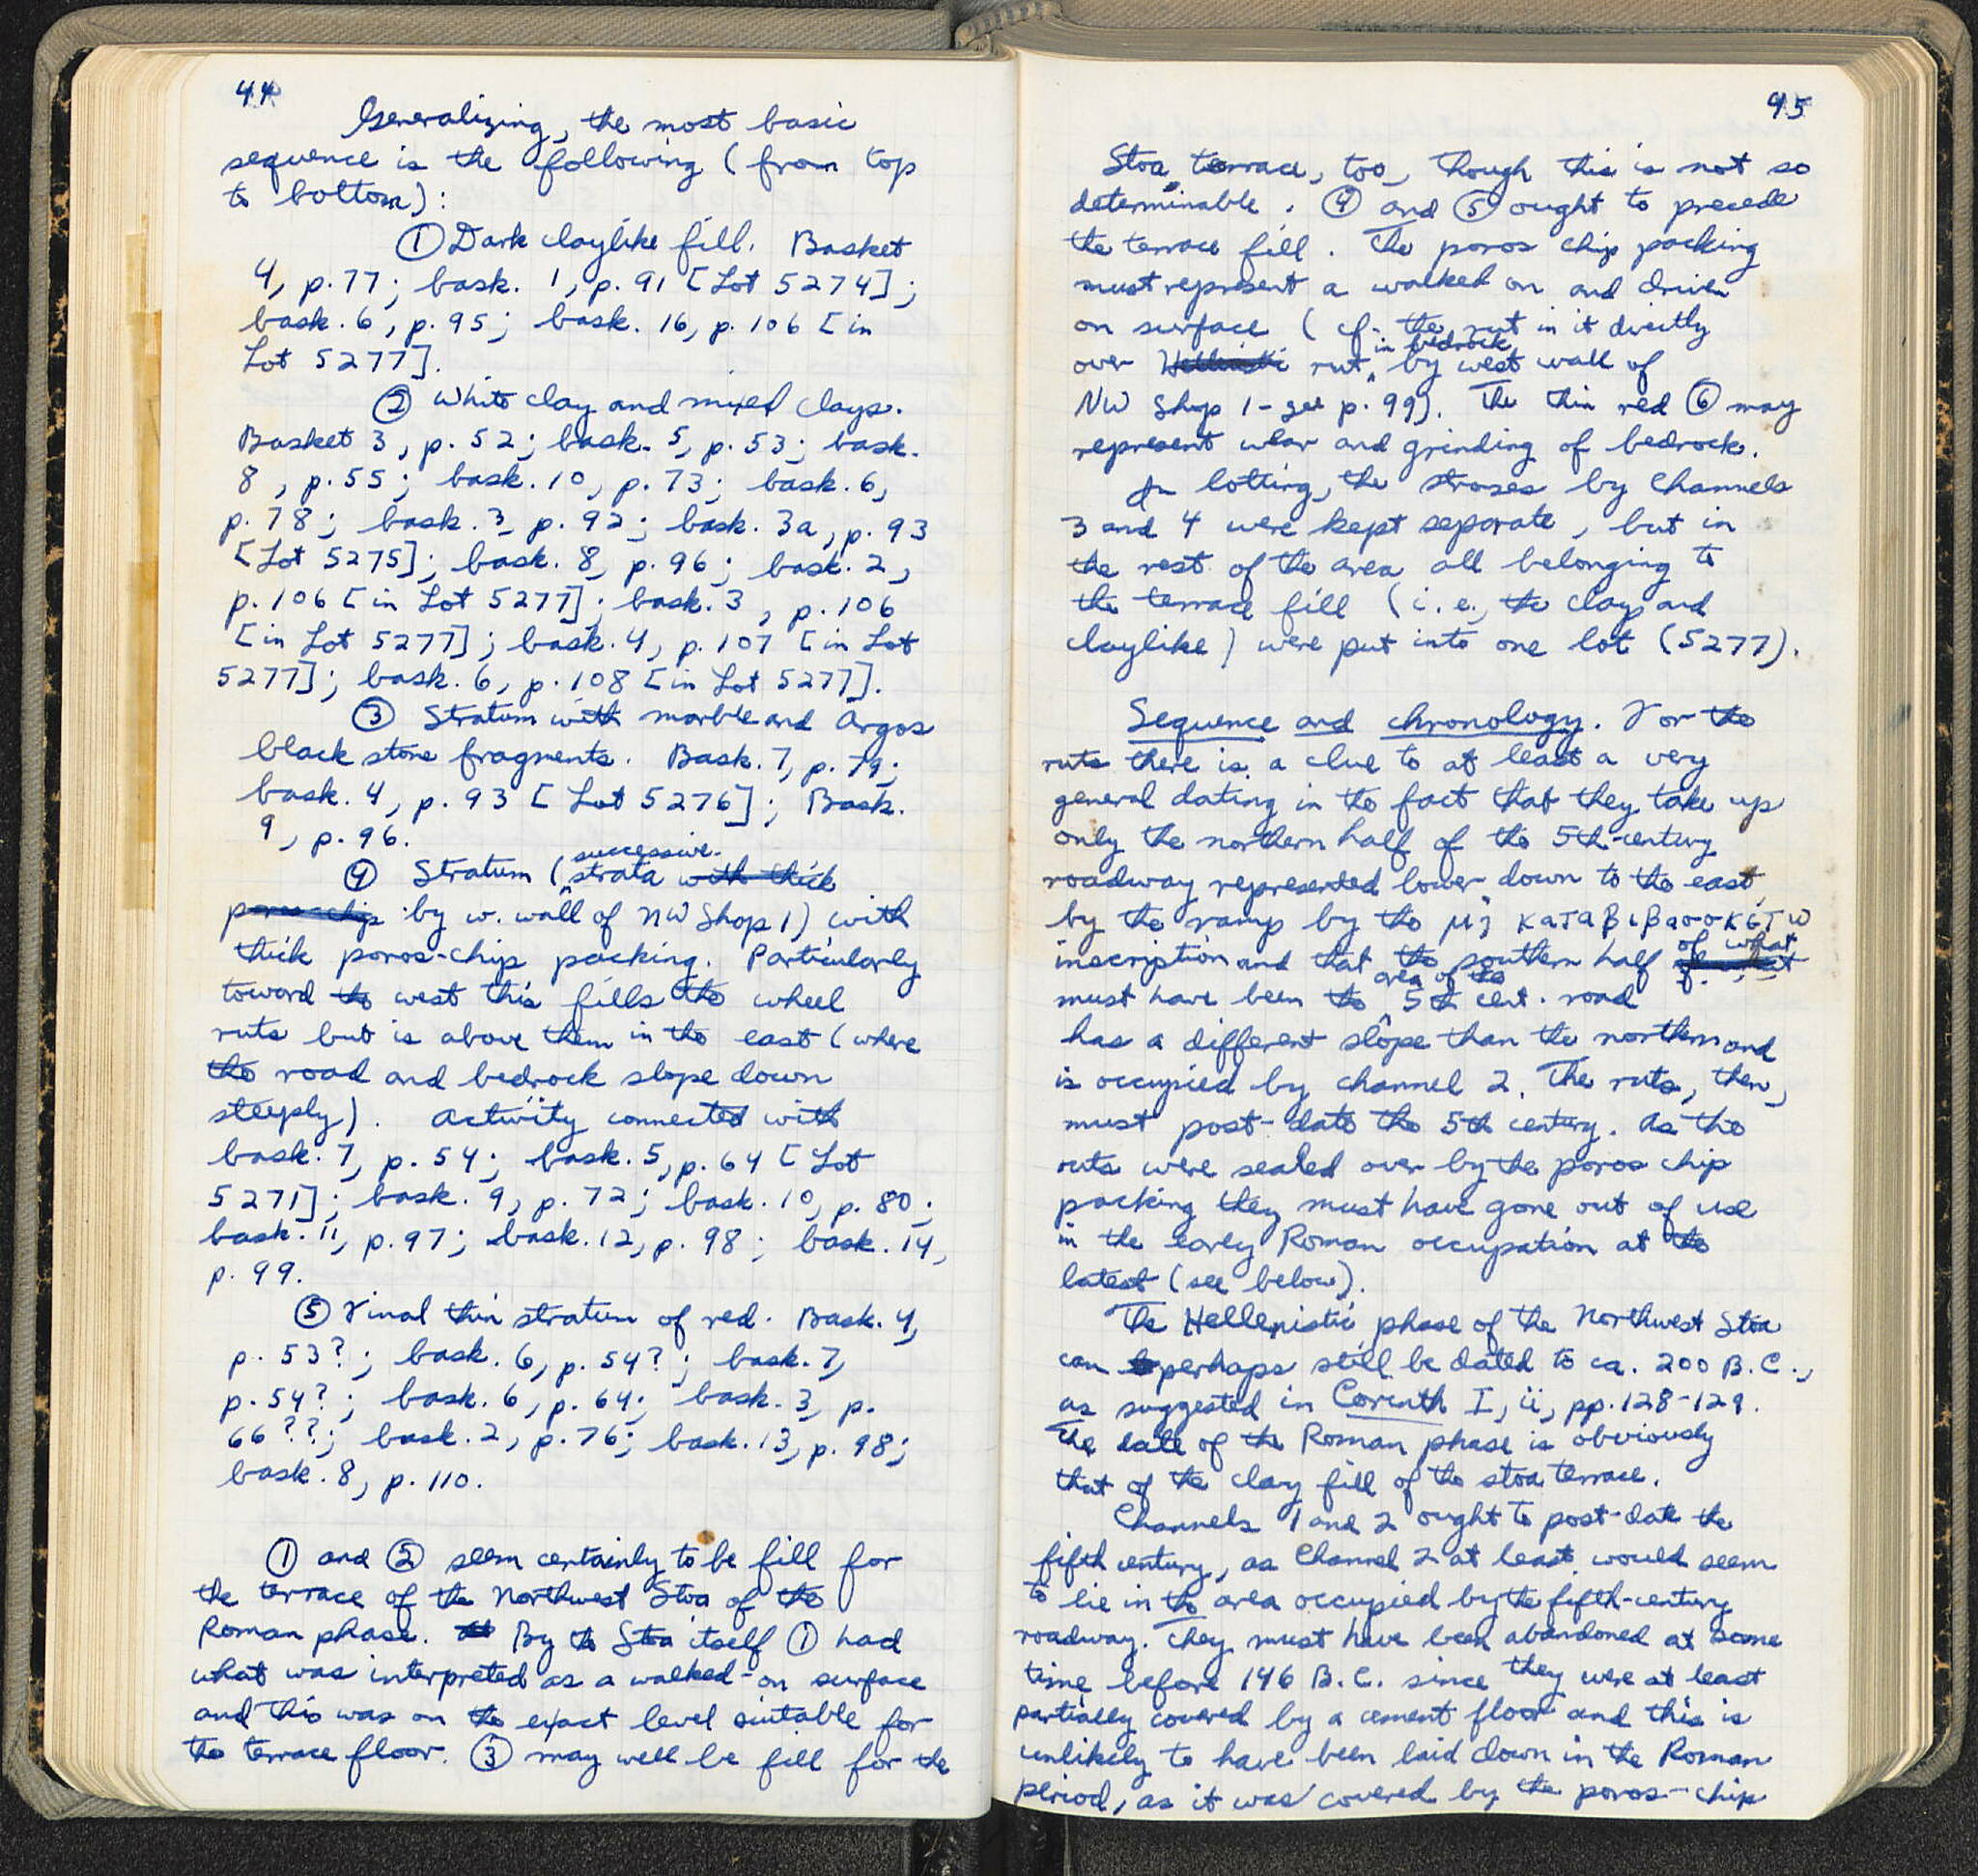 44
Generalizing, the most basic
sequence is the following (from top
to bottom):
① Dark claylike fill. Basket
4, p. 77; bask. 1, p. 91 [Lot 5274];
bask. 6, p. 95; bask. 16, p. 106 [in
Lot 5277].
② White clay and mixed clays.
Basket 3, p. 52; bask. 5, p. 53; bask.
8, p. 55; bask. 10, p. 73; bask. 6,
p. 78; bask. 3, p. 92; bask. 3a, p. 93
[Lot 5275]; bask. 8, p. 96; bask. 2,
p. 106 [in Lot 5277]; bask. 3, p. 106
[in Lot 5277]; bask. 4, p. 107 [in Lot
5277]; bask. 6, p. 108 [in Lot 5277].
③ Stratum with marble and Argos
black stone fragments. Bask. 7, p. 79;
bask. 4, p. 93 [Lot 5276]; Bask.
9, p. 96.
④ Stratum (successive strata with thick
poros-chip by w. wall of NW Shop 1) with
thick poros-chip packing. Particularly
toward the west this fills the wheel
ruts but is above them in the east (where
the road and bedrock slope down
steeply). Activity connected with
bask. 7, p. 54; bask. 5, p. 64 [Lot
5271]; bask. 9, p. 72; bask. 10, p. 80;
bask. 11, p. 97; bask. 12, p. 98; bask. 14,
p. 99.
⑤ Final thin stratum of red. Bask. 4,
p. 53?; bask. 6, p. 54?; bask. 7,
p. 54?; bask. 6, p. 64; bask. 3, p.
66??; bask. 2, p. 76; bask. 13, p. 98;
bask. 8, p. 110.
① and ② seem certainly to be fill for
the terrace of the Northwest Stoa of the
Roman phase. By the Stoa itself ① had
what was interpreted as a walked-on surface
and this was on the exact level suitable for
the terrace floor. ③ may well be fill for the
45
Stoa terrace, too, though this is not so
determinable. ④ and ⑤ ought to precede
the terrace fill. The poros chip packing
must represent a walked on and driven
on surface (cf. the rut in it directly
over Hellenistic rut in bedrock by west wall of
NW Shop 1 - see p. 99). The thin red ⑥ may
represent wear and grinding of bedrock.
In lotting, the stroses by Channels
3 and 4 were kept separate, but in
the rest of the area all belonging to
the terrace fill (i.e., the clays and
claylike) were put into one lot (5277).
Sequence and chronology. For the
ruts there is a clue to at least a very
general dating in the fact that they take up
only the northern half of the 5th-century
roadway represented lower down to the east
by the ramp by the μὴ καταβιβασσκέτω
inscription and that the southern half of what of what
must have been the area of the 5th cent. road
has a different slope than the northern and
is occupied by channel 2. The ruts, then,
must post-date the 5th century. As the
ruts were sealed over by the poros chip
packing they must have gone out of use
in the early Roman occupation at the
latest (see below).
The Hellenistic phase of the Northwest Stoa
can perhaps still be dated to ca. 200 B.C.,
as suggested in Corinth I, ii, pp. 128-129.
The date of the Roman phase is obviously
that of the clay fill of the stoa terrace.
Channels 1 and 2 ought to post-date the
fifth century, as Channel 2 at least would seem
to lie in the area occupied by the fifth-century
roadway. They must have been abandoned at some
time before 146 B.C. since they were at least
partially covered by a cement floor and this is
unlikely to have been laid down in the Roman
period, as it was covered by the poros-chip